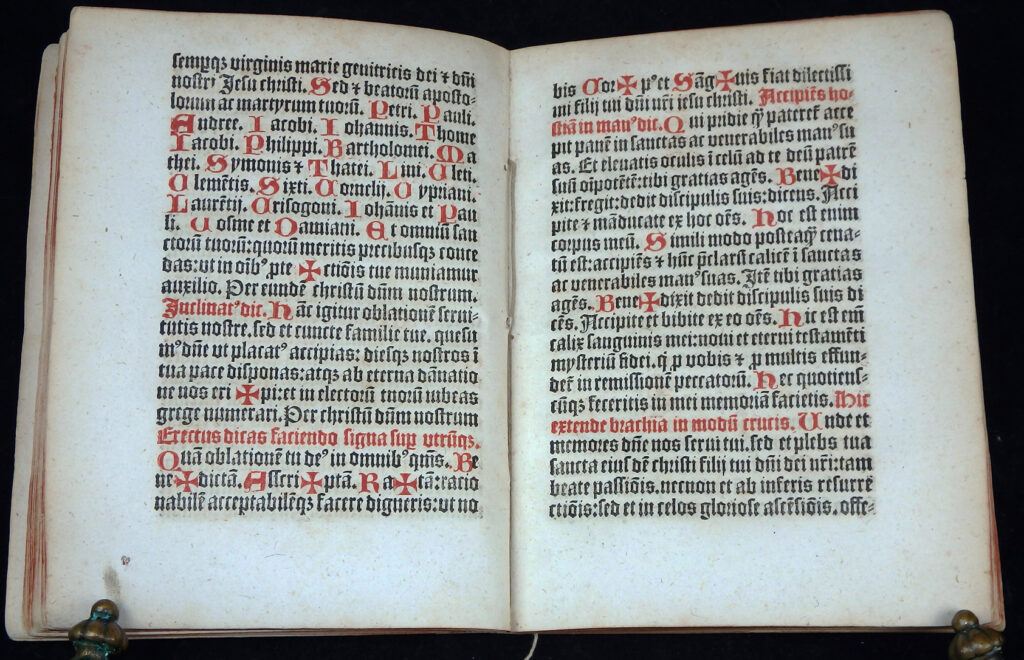 sempqꝫ virginis marie genitricis dei ⁊ dñi
nostri Jesu christi. Sed ⁊ beatorũ aposto⸗
lorum ac martyrum tuorũ. Petri. Pauli.
Andree. Iacobi. Iohannis. Thome
Iacobi. Philippi. Bartholomei. Ma
thei. Symonis ⁊ Thatei. Lini. Cleti.
Clemẽtis. Sixti. Cornelij. Cypriani.
Laurẽtij. Crisogoni. Iohãnis et Pau
li. Cosme et Damiani. Et omniũ san
ctorũ tuorũ: quorũ meritis precibusqꝫ conce
das: vt in oĩbꝰ ꝓte ✠ ctiõis tue muniamur
auxilio. Per eundẽ christũ dñm nostrum.
Inclinatꝰ dic. Hãc igitur oblationẽ serui⸗
tutis nostre. sed et cuncte familie tue. quesu
mꝰ dñe vt placatꝰ accipias: diesqꝫ nostros ĩ
tua pace disponas: atqꝫ ab eterna dãnatio
ne nos eri ✠ pi: et in electorũ tuorũ iubeas
grege numerari. Per christũ dñm nostrum
Erectus dicas faciendo signa suꝑ vtrũqꝫ.
Quã oblationẽ tu deꝰ in omnibꝰ qm̃s. Be
ne ✠ dictã. Asscri ✠ ptã. Ra ✠ tã: racio
nabilẽ acceptabilẽqꝫ facere digneris: vt no
bis Cor ✠ pꝰ et Sãg ✠ uis fiat dilectissi
mi filij tui dñi nr̃i iesu christi. Accipiẽs ho⸗
stiã in manꝰ dic. Qui pridie q̃ꝫ pateret̃ acce
pit panẽ in sanctas ac venerabiles manꝰ su
as. Et eleuatis oculis ĩ celũ ad te deũ patrẽ
suũ oĩpotẽtẽ: tibi gratias agẽs. Bene ✠ di
xit: fregit: dedit discipulis suis: dicens. Acci
pite ⁊ mãducate ex hoc oẽs. Hoc est enim
corpus meũ. Simili modo postea q̃ꝫ cena⸗
tũ est: accipiẽs ⁊ hũc p̃clarũ calicẽ ĩ sanctas
ac venerabiles manꝰ suas. Itẽ tibi gratias
agẽs. Bene ✠ dixit dedit discipulis suis di
cẽs. Accipite et bibite ex eo oẽs. Hic est em̃
calix sanguinis mei: noui et eterni testamẽti
mysteriũ fidei. q̃ ꝓ vobis ⁊ ꝓ multis effun⸗
det̃ in remissionẽ peccatorũ. Hec quotiens⸗
cũqꝫ feceritis in mei memoriã facietis. Hic
extende brachia in modũ crucis. Unde et
memores dñe nos serui tui. sed et plebs tua
sancta eiusdẽ christi filij tui dñi dei nr̃i: tam
beate passiõis. necnon et ab inferis resurre
ctiõis: sed et in celos gloriose ascẽsiõis. offe⸗